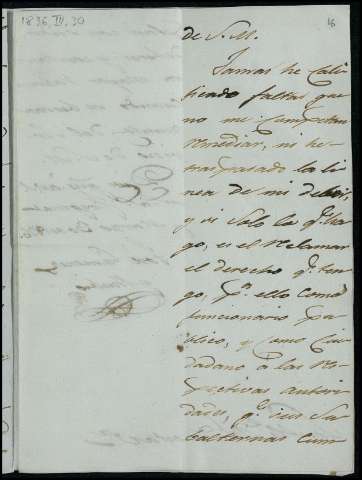 1836, III, 30
16
de S. M.
Jamas he Cali
ficado faltas que
no me Competan
remediar, ni he
traspasado la li
nea de mi deber,
y si solo lo q.e ha
go, es el reclamar
el derecho q.e ten
go, p.a ello como
funcionario pu
blico, y como Ciu
dadano à las res
pectivas autori
dades, q.e sus Su
balternas Cum